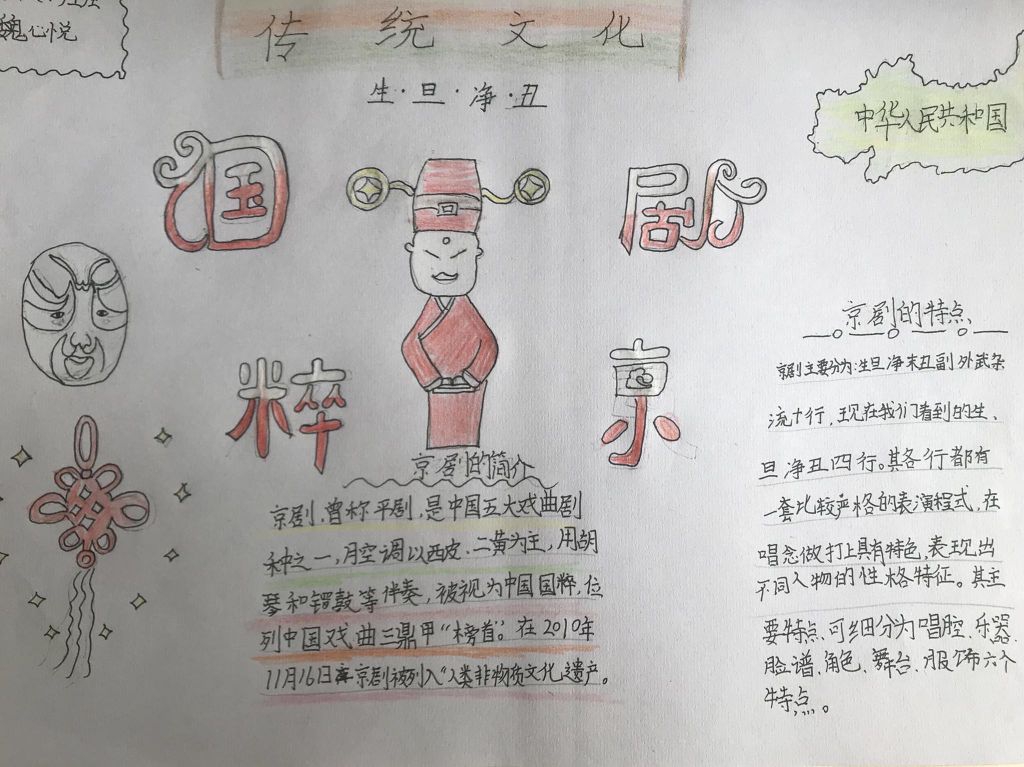 魏心悦
传统文化
生·旦·净·丑
中华人民共和国
国
剧
粹
京
京剧的简介
京剧,曾称平剧,是中国五大戏曲剧
种之一,腔调以西皮.二黄为主,用胡
琴和锣鼓等伴奏,被视为中国国粹,位
列中国戏曲三鼎甲“榜首”。在2010年
11月16日京剧被列入“人类非物质文化遗产。
京剧的特点、
京剧主要分为:生旦净末丑副外武杂
流十行,现在我们看到的生、
旦净丑四行。其各行都有
一套比较严格的表演程式,在
唱念做打上具有特色,表现出
不同人物的性格特征。其主
要特点、可细分为唱腔、乐器、
脸谱、角色、舞台、服饰六个
特点。